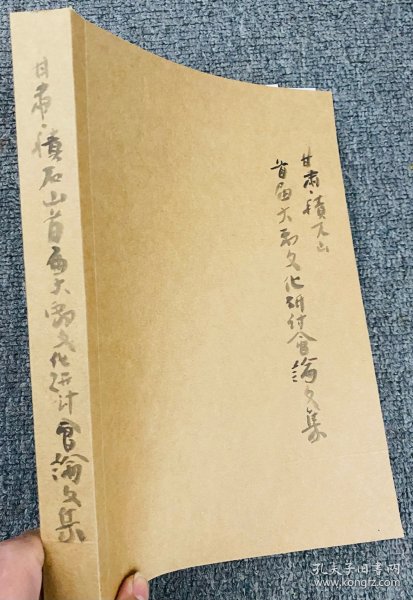 甘肃·積石山
首届大禹文化研讨會論文集
甘肃·積石山首届大禹文化研讨會論文集
孔夫子旧书网
www.kongfz.com